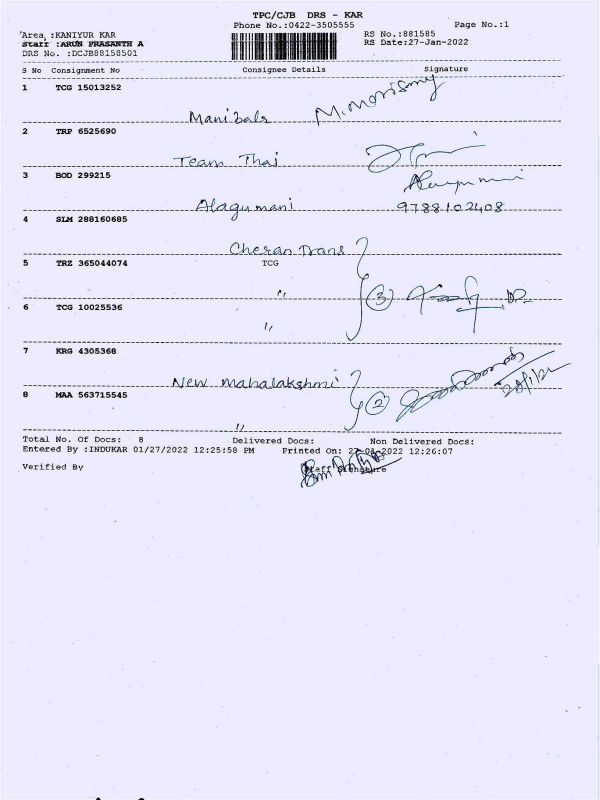 TPC/CJB DRS - KAR
Phone No.:0422-3505555 Page No.:1
Area :KANIYUR KAR RS No.:881585
Staff :ARUN PRASANTH A RS Date:27-Jan-2022
DRS No. :DCJB88158501
S No Consignment No Consignee Details Signature
1 TCG 15013252
Manibala
2 TRP 6525690
Team Thai
3 BOD 299215
Alagumani 9788102408
4 SLM 288160685
Cheran Trans
5 TRZ 365044074 TCG
" 3
6 TCG 10025536
"
7 KRG 4305368
New Mahalakshmi
8 MAA 563715545 2
"
Total No. Of Docs: 8 Delivered Docs: Non Delivered Docs:
Entered By :INDUKAR 01/27/2022 12:25:58 PM Printed On: 27-01-2022 12:26:07
Verified By Staff Signature